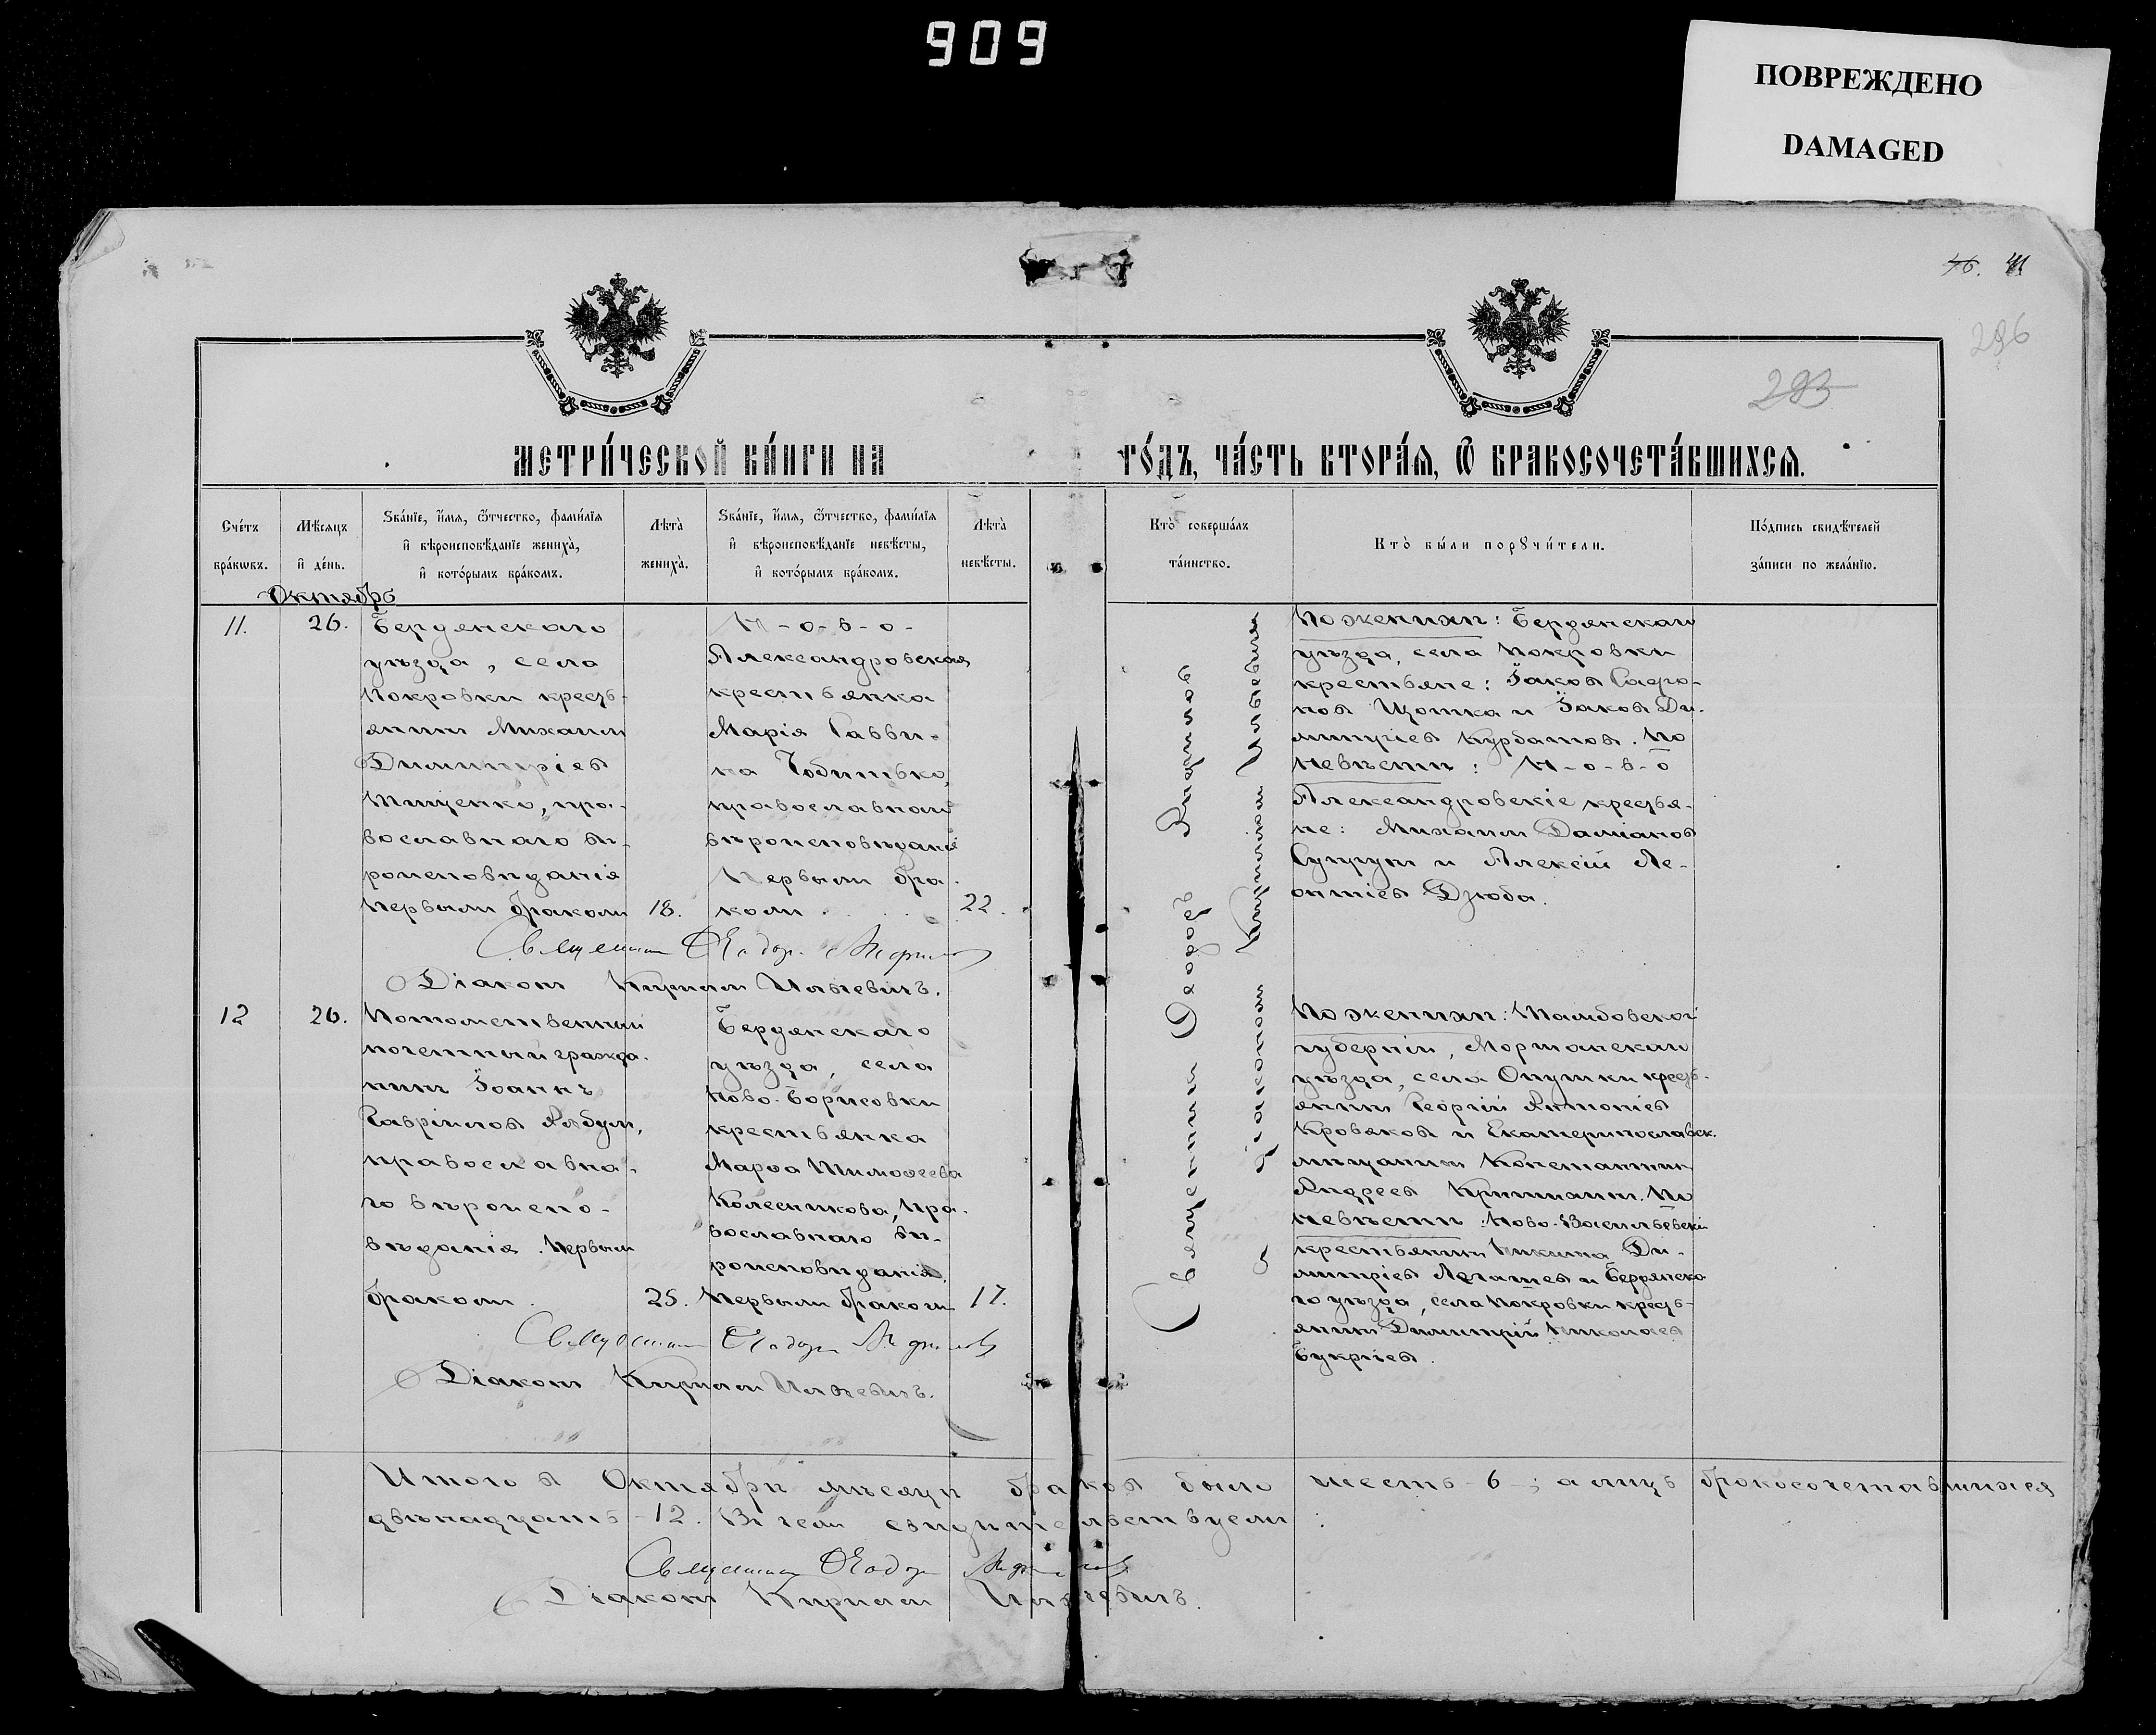 909
ПОВРЕЖДЕНО
DAMAGED
293
296
МЕТРИ́ЧЕСКОЙ КНИ́ГИ НА
ГО́ДЪ, ЧА́СТЬ ВТОРА́Я, Ѿ БРАКОСОЧЕТА́ВШИХСЯ.
Сче́тъ бра́кѡвъ.
Мѣ́сяцъ и҆ де́нь.
Ѕва́нїе, и҆́мя, ѻ҆́тчество, фами́лїя
и҆ вѣроисповѣ́данїе жениха̀,
и҆ кото́рымъ бра́комъ.
Лѣта̀ жениха̀.
Ѕва́нїе, и҆́мя, ѻ҆́тчество, фами́лїя
и҆ вѣроисповѣ́данїе невѣ́сты,
и҆ кото́рымъ бра́комъ.
Лѣта̀ невѣ́сты.
Кто̀ соверша́лъ
та́инство.
Кто̀ бы́ли порꙋчи́тели.
По́дпись свидѣ́телей
за́писи по жела́нїю.
Октябрь
11.
26.
Бердянскаго
уѣзда, села
Покровки кресть-
янинъ Михаилъ
Димитріевъ
Тищенко, пра-
вославнаго вѣ-
роисповѣданія
Первымъ бракомъ
18.
Н-о-в-о-
Александровская
крестьянка
Марія Савви-
на Чобитько,
православнаго
вѣроисповѣданія
Первымъ бра-
комъ.
22.
Священникъ Ѳеодоръ
Діаконъ Кириллъ Ильевичъ.
Священникъ Ѳеодоръ
Діакономъ Кирилломъ Ильевичемъ
По женихѣ: Бердянскаго
уѣзда, села Покровки
крестьяне: Іаковъ Сафро-
новъ Щотка и Іаковъ Ди-
митріевъ Курбатовъ. По
невѣстѣ: Н-о-в-о
Александровскіе крестья-
не: Михаилъ Даміановъ
Супрунъ и Алексій Ле-
онтіевъ Дзюба.
12
26.
Потомственный
почетный гражда-
нинъ Іоаннъ
Гавріиловъ
православна-
го вѣроиспо-
вѣданія. Первымъ
бракомъ.
25.
Бердянскаго
уѣзда, села
Ново-Борисовки
крестьянка
Марѳа Тимоѳеева
Колесникова, пра-
вославнаго вѣ-
роисповѣданія.
Первымъ бракомъ
17.
Священникъ Ѳеодоръ
Діаконъ Кириллъ Ильевичъ.
По женихѣ: Тамбовской
губерніи, Моршанскаго
уѣзда, села Опушки кресть-
янинъ Георгій Антоніевъ
Кровяковъ и Екатеринославск.
мѣщанинъ Константинъ
Андреевъ По
невѣстѣ: Ново-Васильевскій
крестьянинъ Никита Ди-
митріевъ и Бердянска-
го уѣзда, села Покровки кресть-
янинъ Димитрій Николаевъ
Букріевъ.
Итого въ Октябрѣ мѣсяцѣ браковъ было шесть-6-; а лицъ бракосочетавшихся
двѣнадцать-12. Въ чемъ свидѣтельствуемъ:
Священникъ Ѳеодоръ
Діаконъ Кириллъ Ильевичъ.